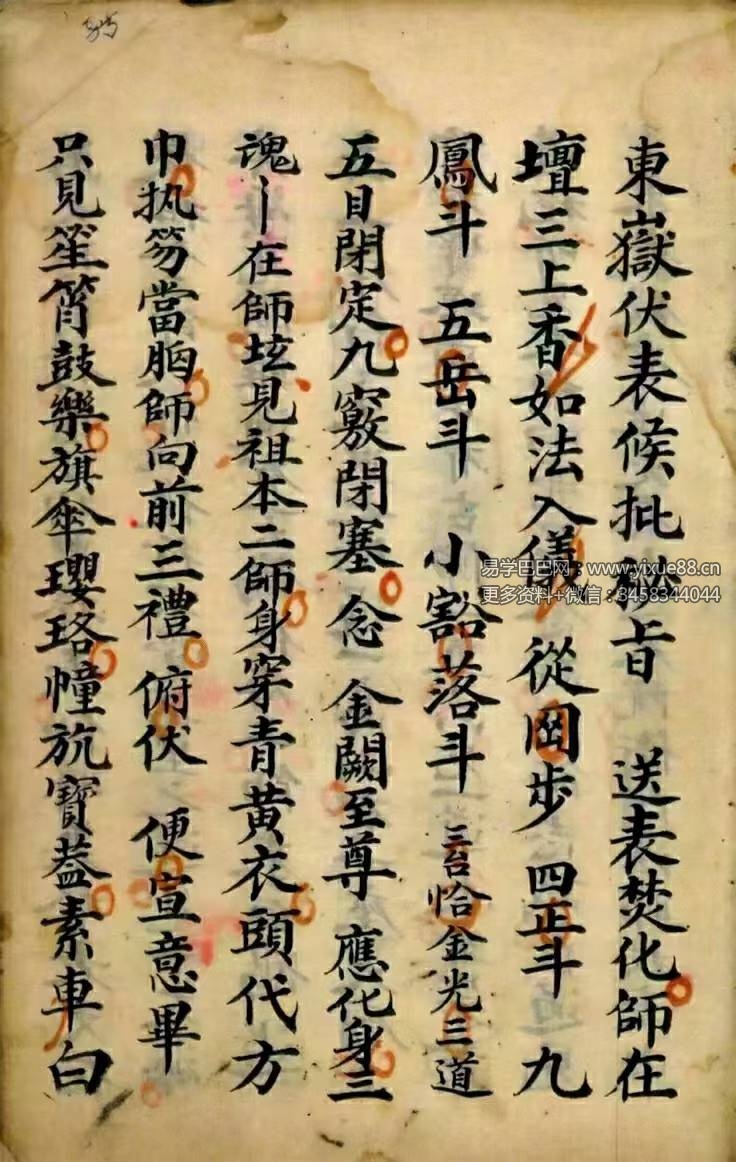 東嶽伏表候批秘旨 送表焚化師在
壇三上香如法入儀 從罡步 四正斗 九
鳳斗 五岳斗 小豁落斗 三台恰金光三道
五目閉定九竅閉塞 念 金闕至尊 應化身三
魂在師坛見祖本二師身穿青黃衣頭代方
巾执笏當胸師向前三禮 俯伏 便宣意畢
只見笙簫鼓樂旗傘瓔珞幢旒寶蓋素車白
易学巴巴网：www.yixue88.cn
更多资料+微信：3458344044